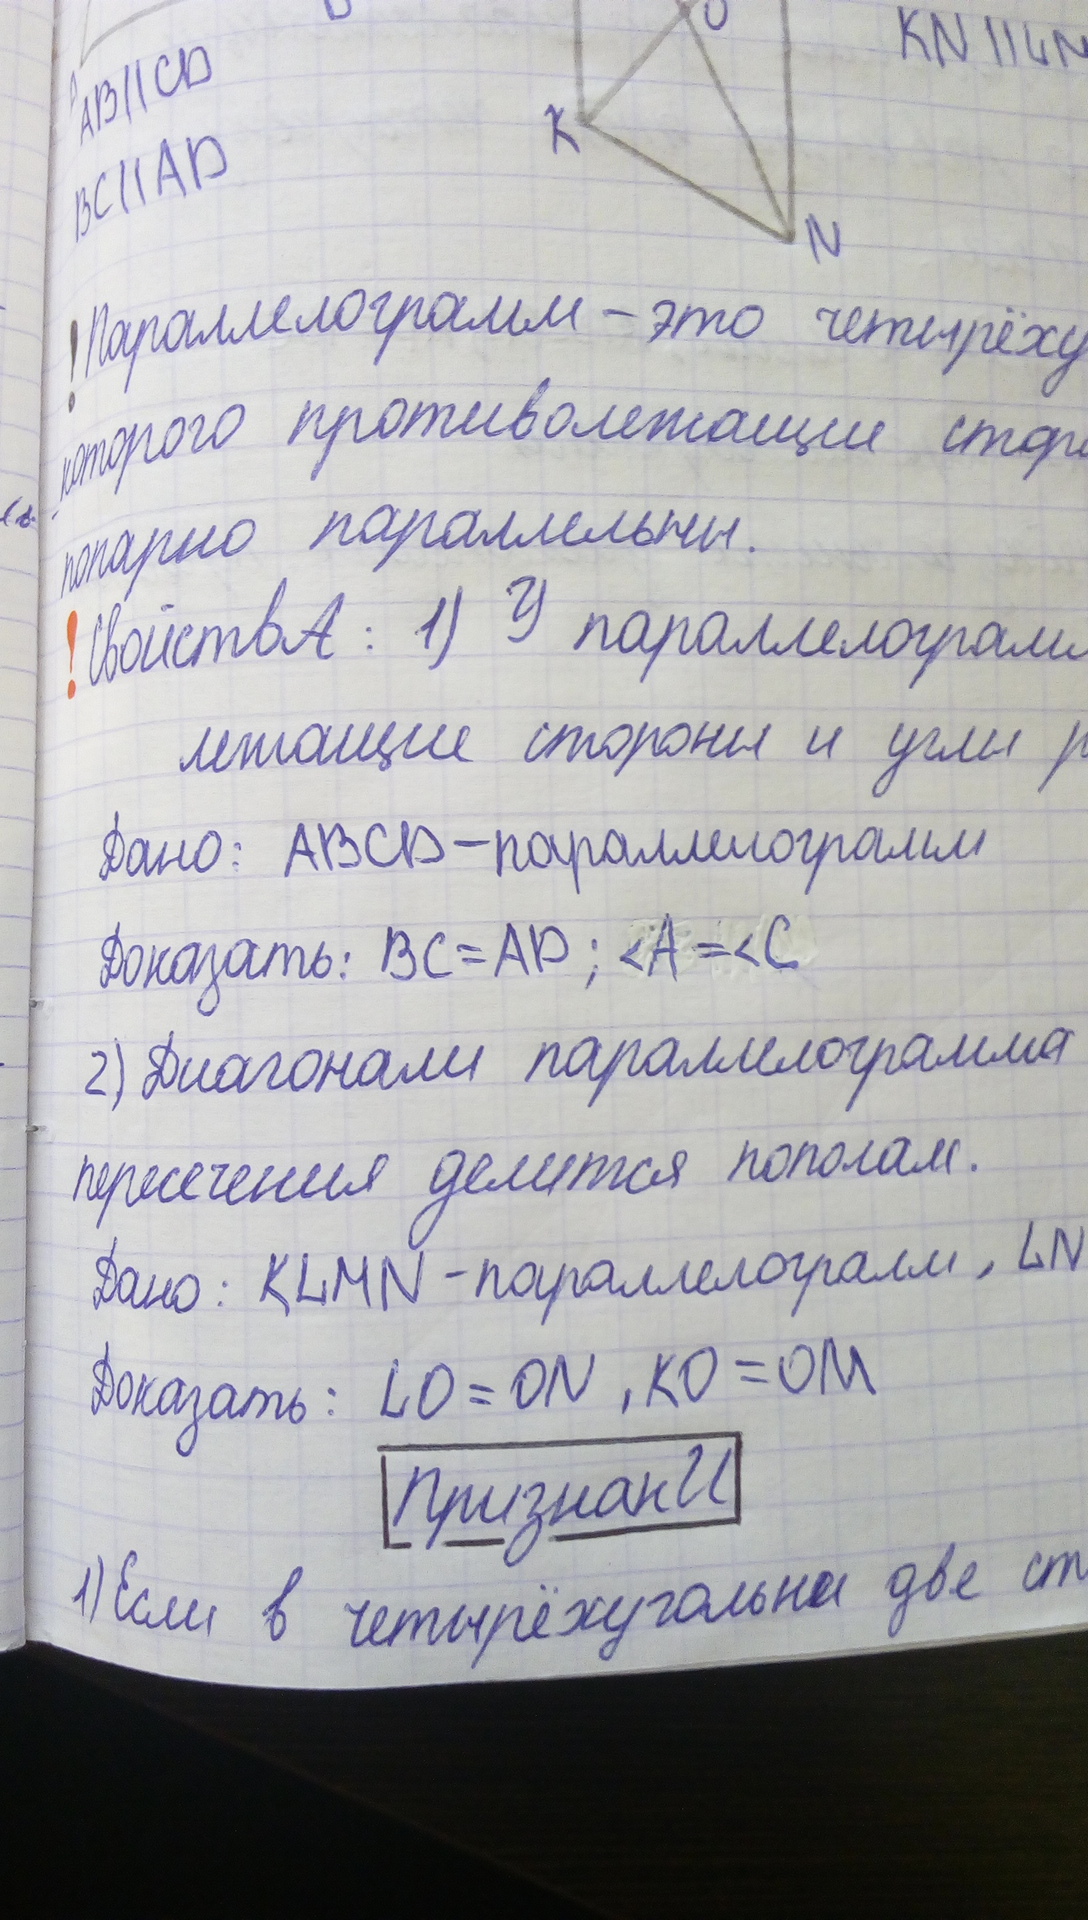 AB||CD
KN||LM
BC||AD
K
N
! Параллелограмм – это четырёху
которого противолежащие сторо
попарно параллельны.
! СвойствА: 1) У параллелограмм
лежащие стороны и углы р
Дано: ABCD – параллелограмм
Доказать: BC = AD ; <A = <C
2) Диагонали параллелограмма
пересечения делится пополам.
Дано: KLMN – параллелограмм, LN
Доказать: LO = ON , KO = OM
ПризнакИ
1) Если в четырёхугольни две ст